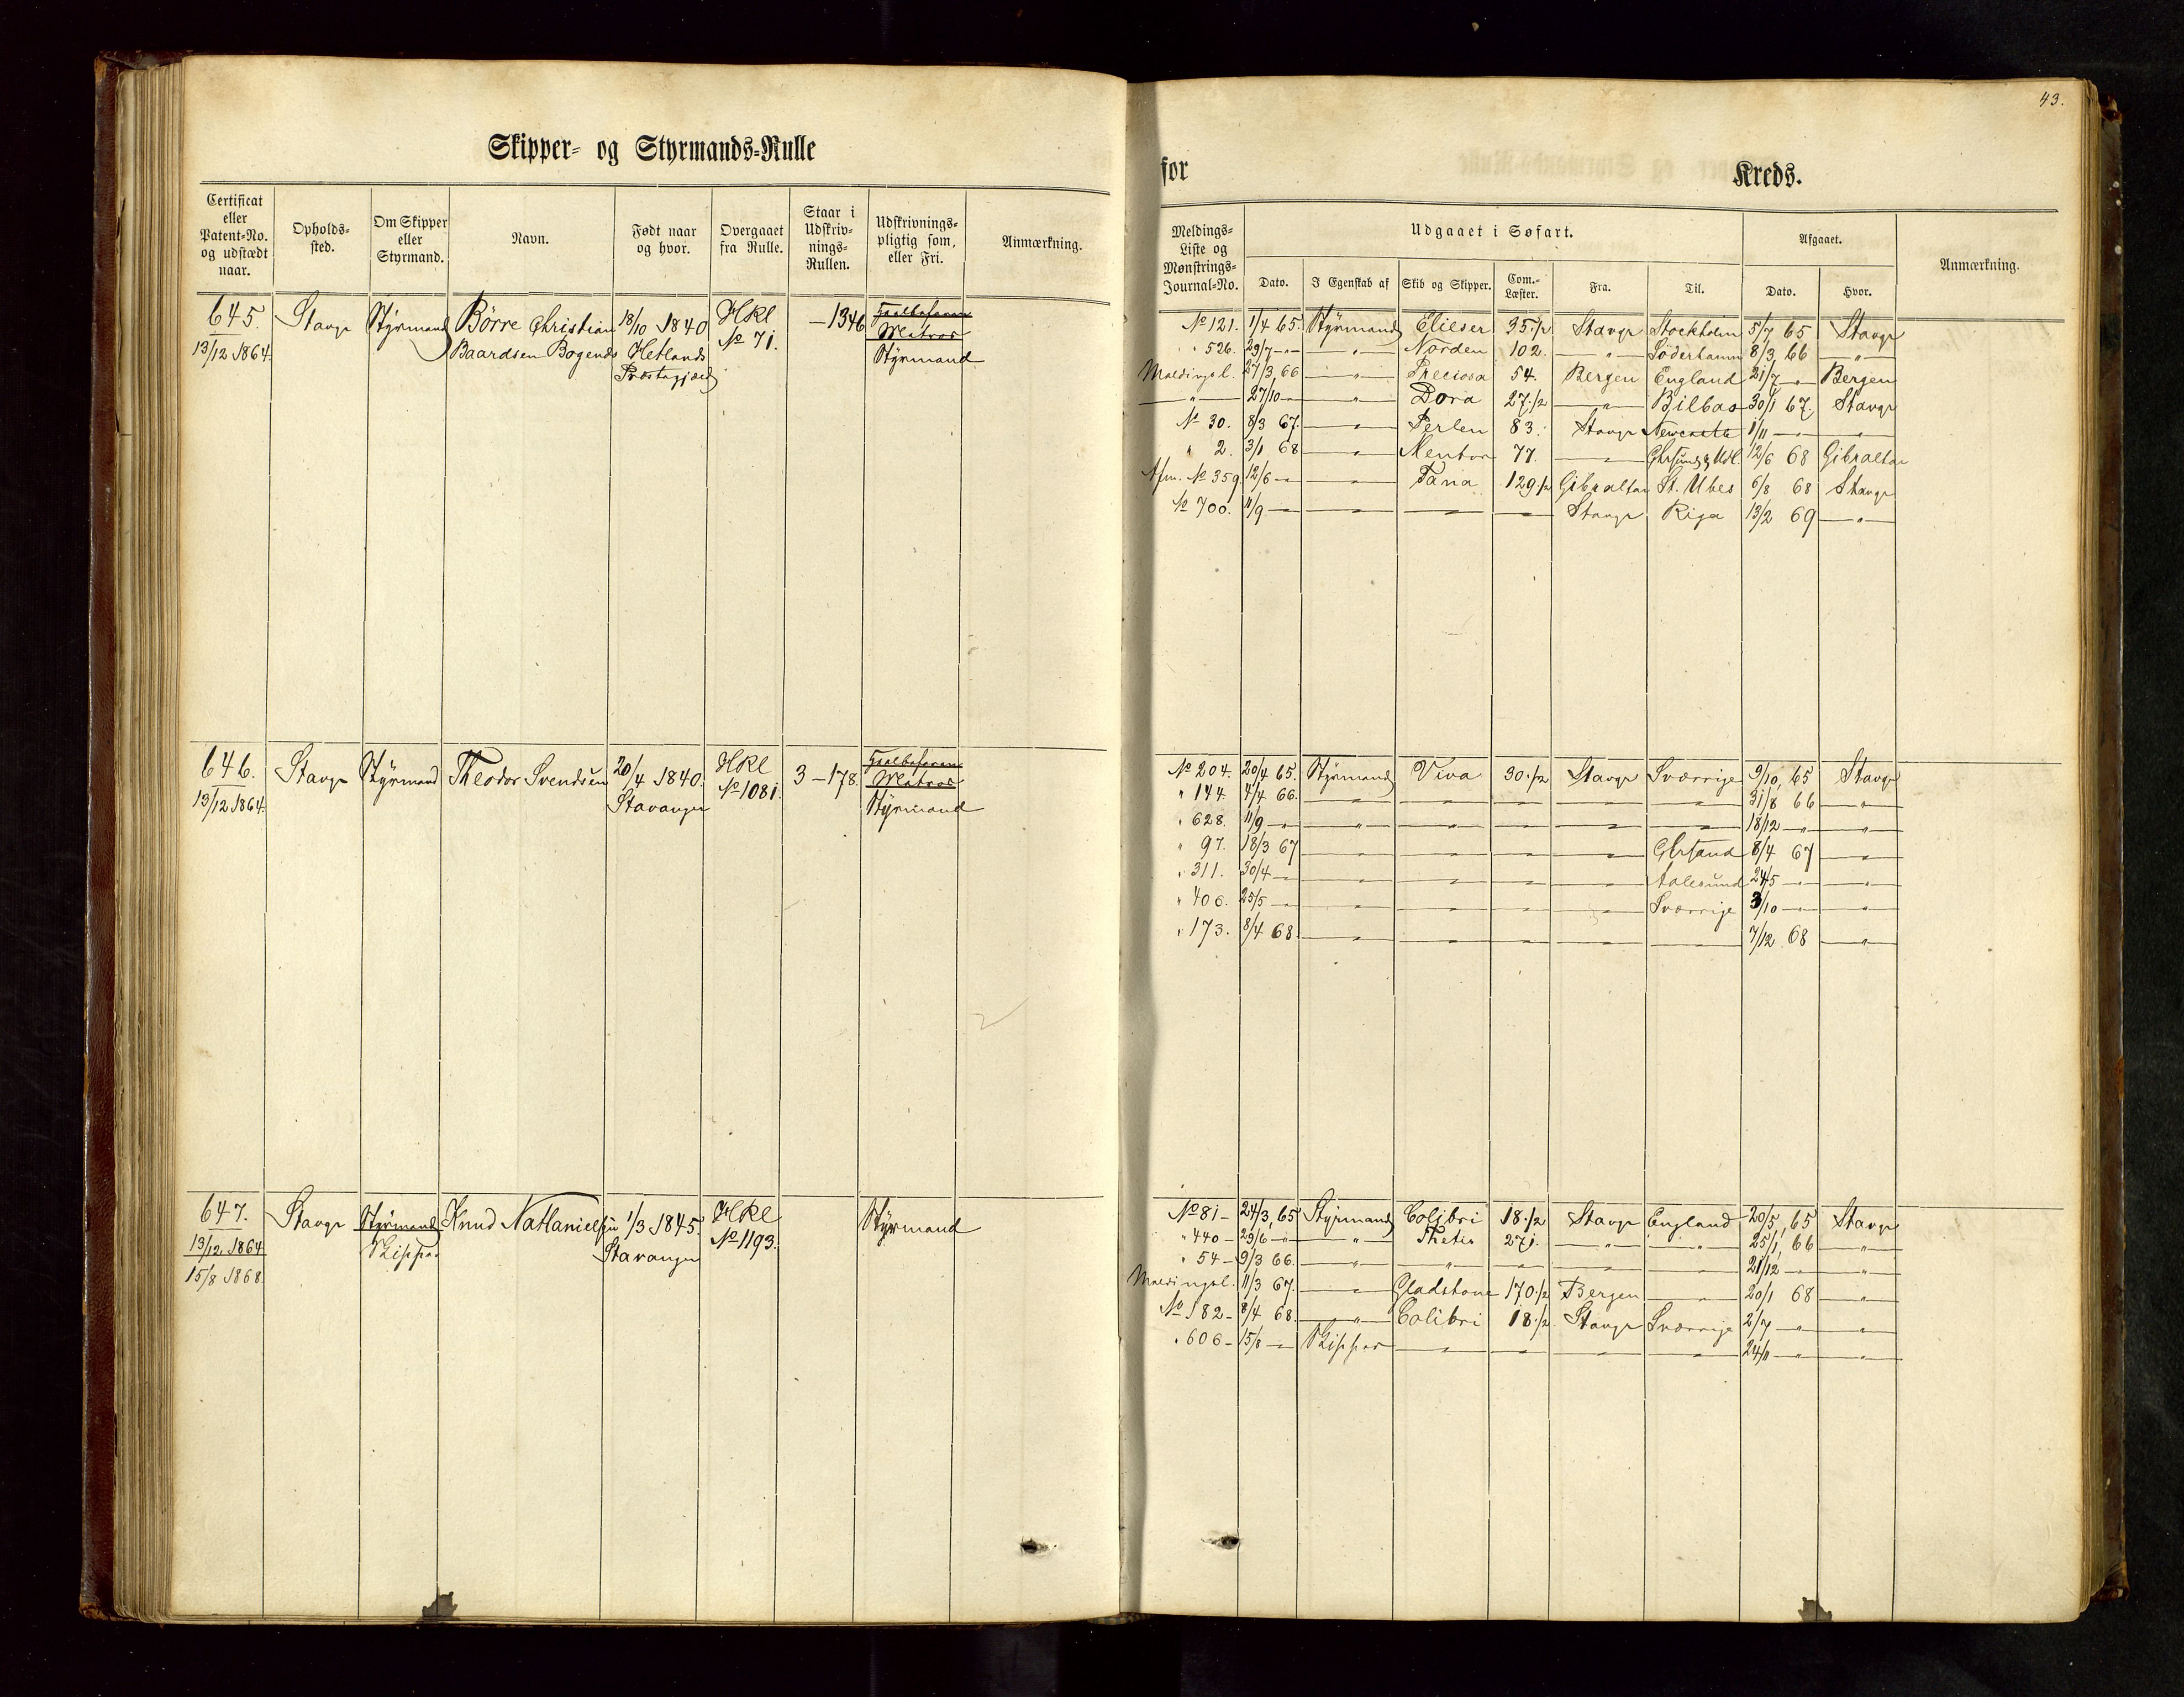 43.
Skipper- og Styrmands-Rulle
for Kreds.
Certificat eller Patent-No. og udstædt naar.
Opholdssted.
Om Skipper eller Styrmand.
Navn.
Født naar og hvor.
Overgaaet fra Rulle.
Staar i Udskrivnings-Rullen.
Udskrivningspligtig som, eller Fri.
Anmærkning.
Meldings-Liste og Mønstrings-Journal-No.
Udgaaet i Søfart.
Dato.
I Egenskab af
Skib og Skipper.
Com.-Læster.
Fra.
Til.
Afgaaet.
Dato.
Hvor.
Anmærkning.
645. Stavgr Styrmand Børre Christian 18/10 1840 HKl — 1346
13/12 1864. Baardsen Bogends Hetlands No 71. Matros
Præstegjæld Styrmand
No 121. 1/4 65. Styrmand Elieser 35 1/2 Stavgr Stockholm 5/7 65 Stavgr
" 526. 29/7 — " — " — Norden 102. — " — Söderhamn 8/3 66 — " —
Meldingsl. 27/3 66 — " — Preciosa 54. Bergen England 21/7 — " — Bergen
— " — 27/10 — — " — Dora 27 1/2 — " — Bilbao 30/1 67. Stavgr
No 30. 8/3 67. — " — Perlen 83. Stavgr Newcastle 1/11 — " — — " —
" 2. 3/1 68 — " — Mentor 77. — " — & Udl. 12/6 68 Gibraltar
Afm. No 359. 12/6 — — " — Tana 129 1/2 Gibraltar St. Ubes 6/8 68 Stavgr
No 700. 11/9 — — " — — " — — " — Stavgr Riga 13/2 69 — " —
646. Stavgr Styrmand Theodor Svendsen 20/4 1840. HKl 3 — 178.
13/12 1864. Stavanger No 1081. Matros
Styrmand
No 204. 20/4 65. Styrmand Viva 30 1/2 Stavgr Sværrige 9/10 65 Stavgr
" 144. 4/4 66. — " — — " — — " — — " — — " — 31/8 66 — " —
" 628. 11/9 — " — — " — — " — — " — — " — — " — 18/12 — " — — " —
" 97. 18/3 67 — " — — " — — " — — " — Chrsand 8/4 67 — " —
" 311. 30/4 — " — — " — — " — — " — — " — Aalesund 24/5 — " — — " —
" 406. 25/5 — " — — " — — " — — " — — " — Sværrige 3/10 — " — — " —
" 173. 8/4 68. — " — — " — — " — — " — — " — 7/12 68 — " —
647. Stavgr Styrmand Knud Nathanielsen 1/3 1845. HKl Styrmand
13/12 1864 Skipper Stavanger No 1193.
15/8 1868.
No 81 — 24/3 65 Styrmand Colibri 18 1/2 Stavgr England 20/5 65 Stavgr
" 440 — 29/6 — " — — " — Thetis 271. — " — — " — 25/1 66 — " —
" 54 — 9/3 66. — " — — " — — " — — " — — " — 21/12 — " — — " —
Meldingsl. 11/3 67. — " — Gladstone 170 1/2 Bergen — " — 20/1 68 — " —
No 182 — 8/4 68. — " — Colibri 18 1/2 Stavgr Sværrige 2/7 — " — — " —
" 606 — 15/8 — " — Skipper — " — — " — — " — — " — 24/11 — " — — " —